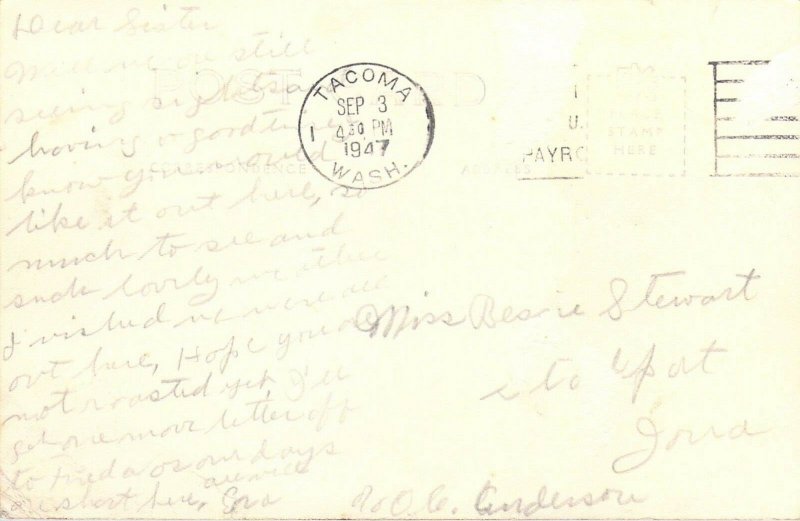 Dear Sister
Well we are still
seeing sights and
having a good time
know you would
like it out here, so
much to see and
such lovely weather
I wished we were all
out here, Hope you are
not roasted yet, I'll
get one more letter off
to Freda as our days
are
are short here,
POST CARD
CORRESPONDENCE
ADDRESS
TACOMA
SEP 3
4 30 PM
1947
WASH.
1
U.
PAYRO
STAMP
HERE
Miss Bessie Stewart
Iowa
Anderson